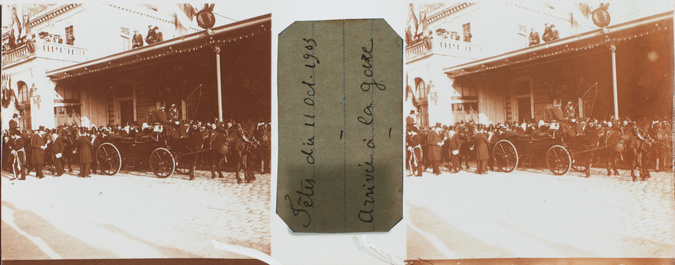 Fêtes du 11 Oct. 1903
Arrivée à la gare